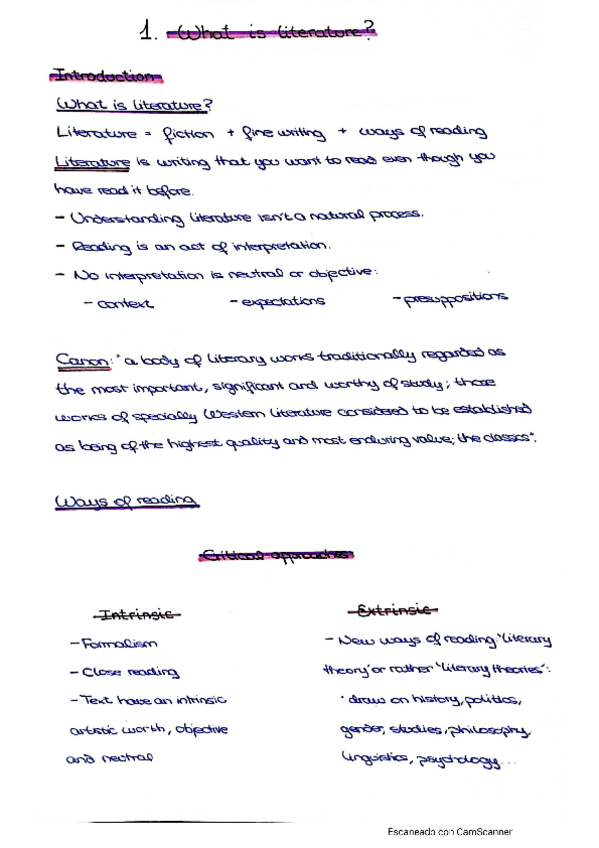 1. What is literature?
Introduction
What is literature?
Literature = fiction + fine writing + ways of reading
Literature is writing that you want to read even though you
have read it before.
- Understanding literature isn't a natural process.
- Reading is an act of interpretation.
- No interpretation is neutral or objective:
- context - expectations - presuppositions
Canon: "a body of literary works traditionally regarded as
the most important, significant and worthy of study; those
works of specially Western literature considered to be established
as being of the highest quality and most enduring value; the classics".
Ways of reading
Critical approaches
Intrinsic
- Formalism
- Close reading
- Text have an intrinsic
artistic worth, objective
and neutral
Extrinsic
- New ways of reading 'literary
theory' or rather 'literary theories':
· draw on history, politics,
gender, studies, philosophy,
linguistics, psychology...
Escaneado con CamScanner